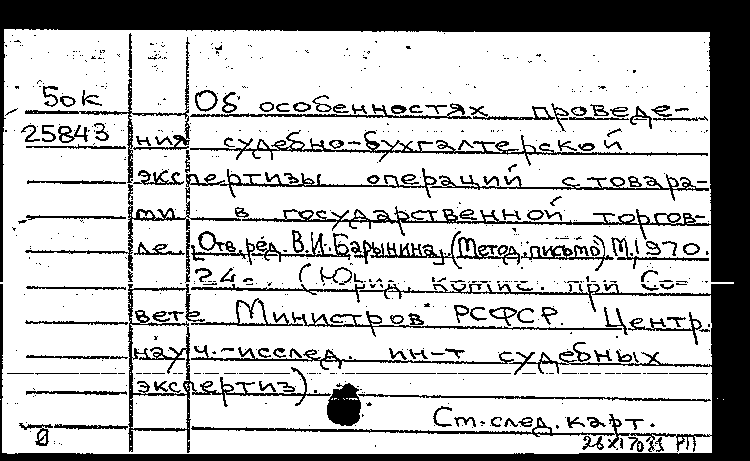 50к Об особенностях проведе-
25843 ния судебно-бухгалтерской
экспертизы операций с товара-
ми в государственной торгов-
ле. [Отв. ред. В.И. Барынина]. (Метод. письмо). М., 1970.
24с. (Юрид. комис. при Со-
вете Министров РСФСР. Центр.
науч.-исслед. ин-т судебных
экспертиз).
Ст. след. карт.
0